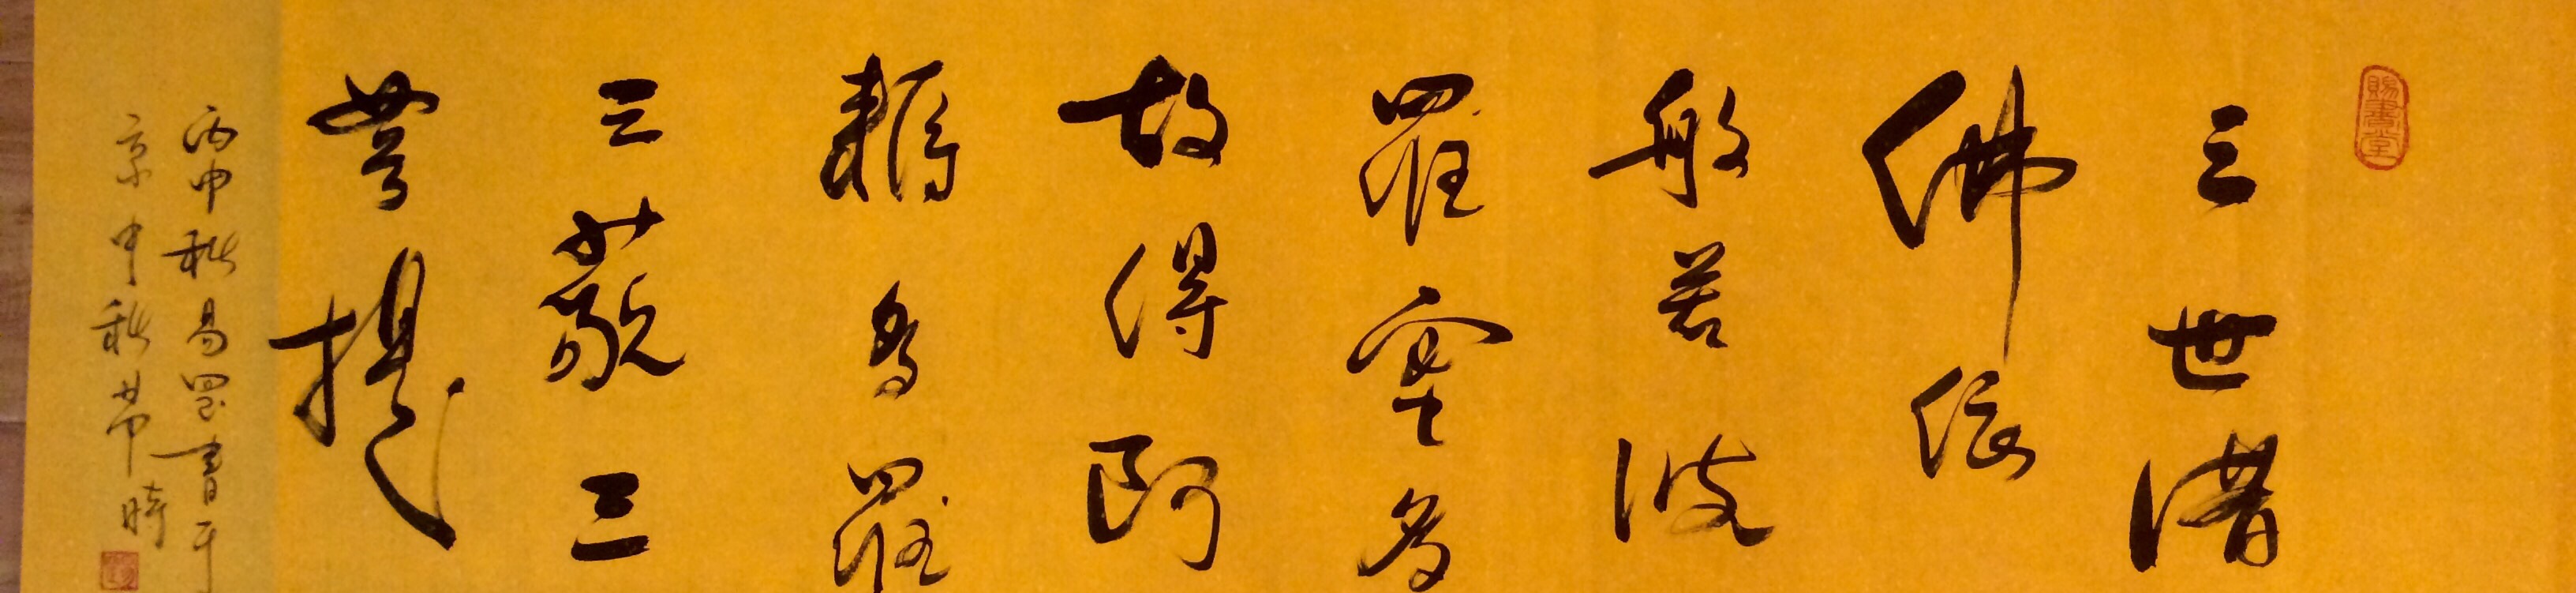 賜書堂
三世諸
佛依
般若波
羅蜜多
故得阿
耨多羅
三藐三
菩提
丙申秋易墨書于
京中秋節時